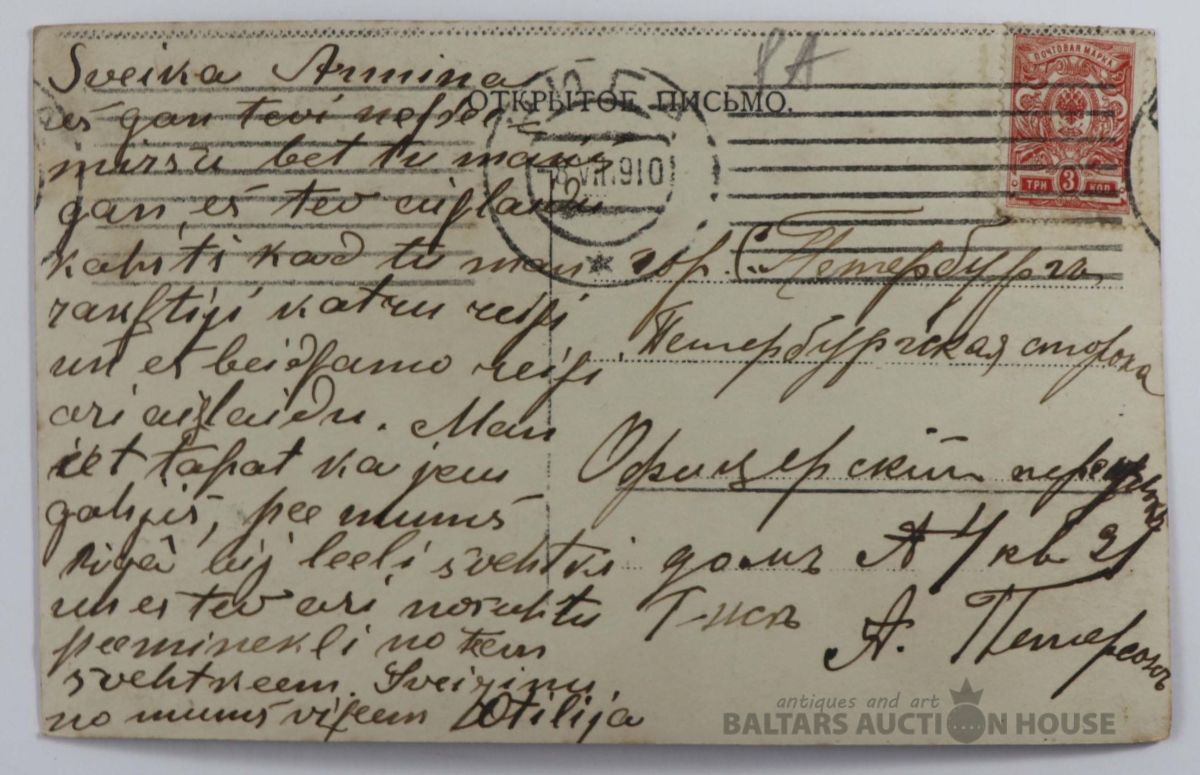 Sveika Armina
es gan tevi nefsee=
mirsu bet tu manis
gan, es tev aiflaidu
kahrti kad tu man
rakftiji katru reifi
un es beidfamo reifi
ari aizlaidu. Man
iet tapat ka jem
gahjis, pee mums
Rigâ bij leeli svehtki
un es tev ari norakstu
peeminekli no teem
svehtkeem. Sveizinu
no mums vifeem Otilija
РА
ОТКРЫТОЕ ПИСЬМО.
ПОЧТОВАЯ МАРКА
ТРИ 3 КОП
8 VII 1910
2
*
гор. С. Петербургъ
Петербургская сторона
Офицерскій переулокъ
домъ № 4 кв 21
Г-жѣ
А. Петерсонъ
antiques and art
BALTARS AUCTION HOUSE